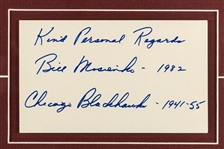 Kind Personal Regards
Bill Mosienko - 1982
Chicago Blackhawk - 1941-55